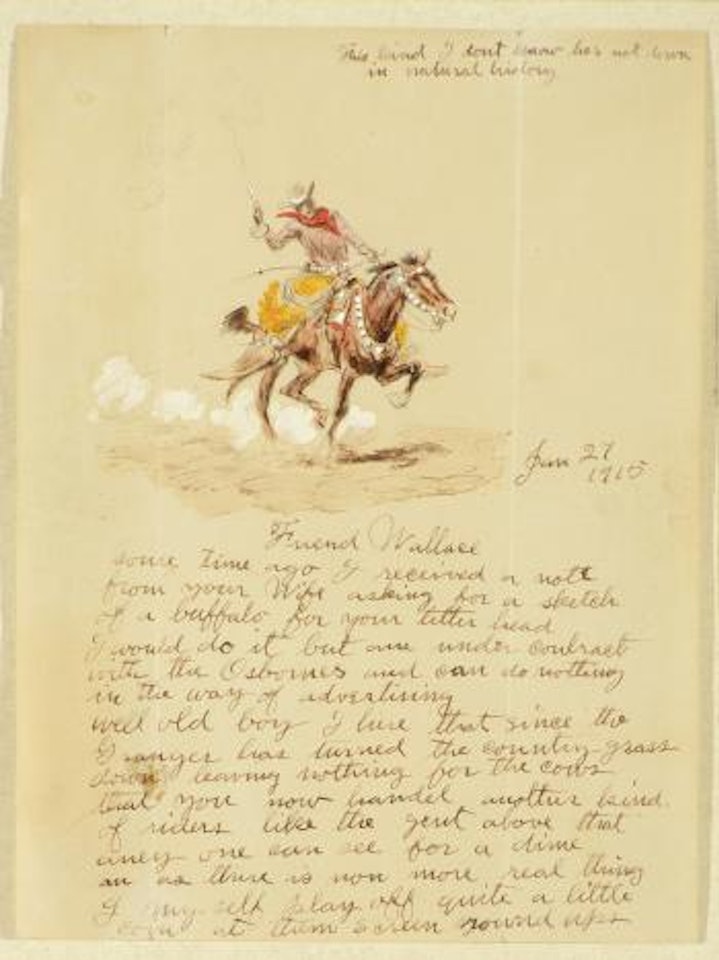 This kind I dont know hes not down
in natural history
Jan 27
1915
Friend Wallace
some time ago I received a note
from your Wife asking for a sketch
of a buffalo for your letter head
I would do it but am under contract
with the Osbornes and can do nothing
in the way of advertising
well old boy I here that since the
Granger has turned the country grass
down leaving nothing for the cows
that you now handel another kind
of riders like the gent above that
aney one can see for a dime
an as there is non more real thing
I my self play off quite a little
coin at them screen round ups